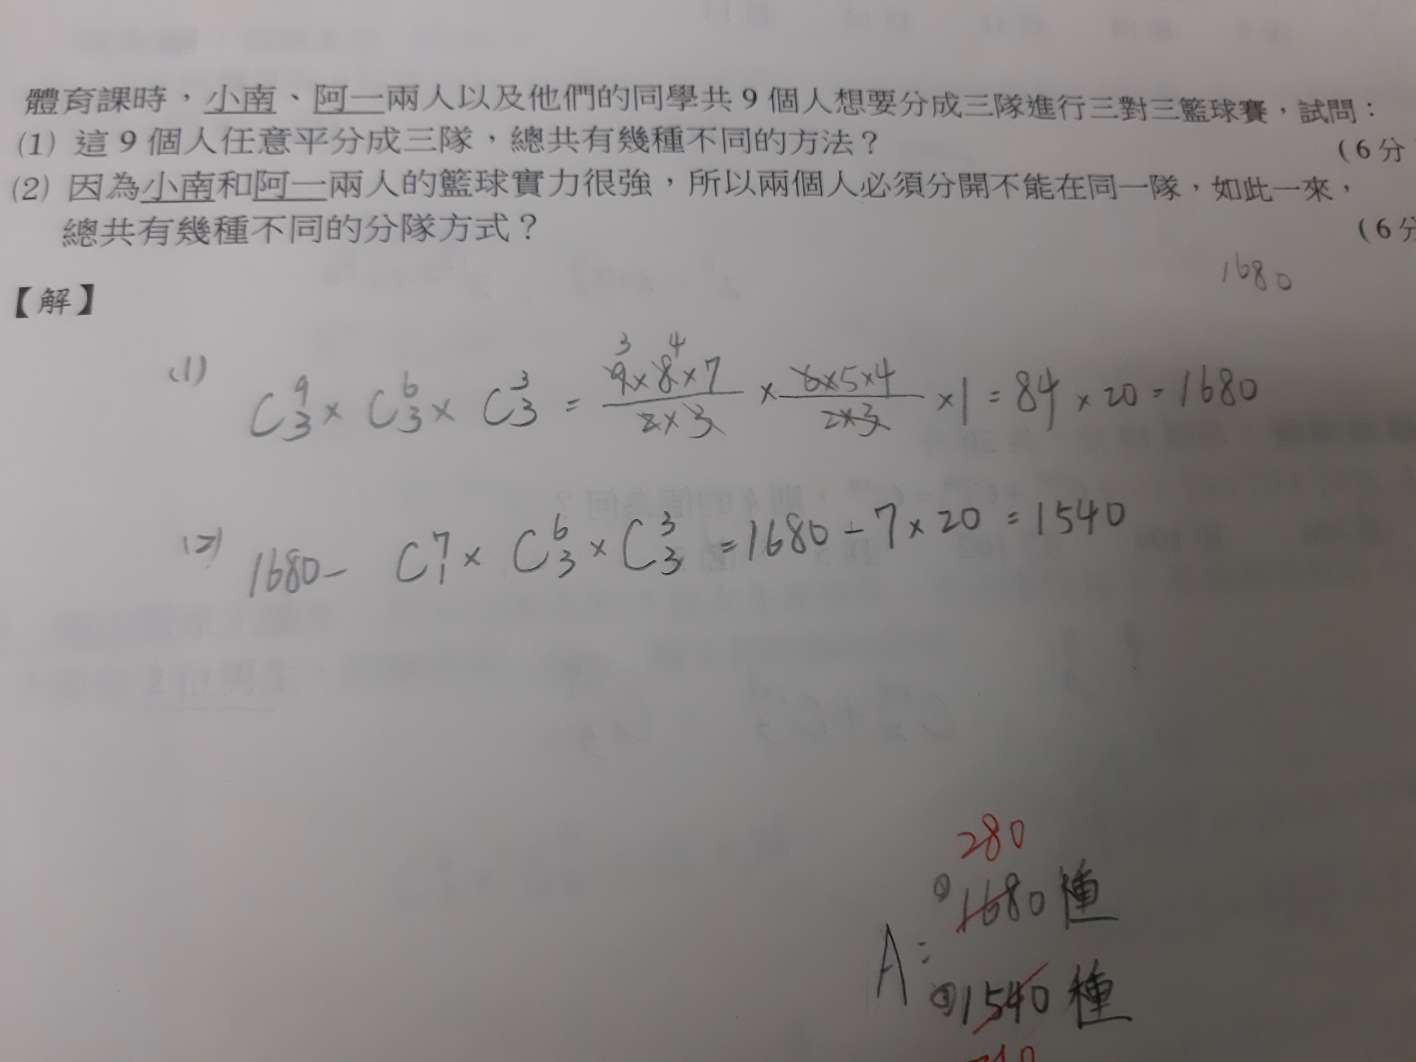 體育課時，小南、阿一兩人以及他們的同學共9個人想要分成三隊進行三對三籃球賽，試問：
(1) 這9個人任意平分成三隊，總共有幾種不同的方法？
(6分
(2) 因為小南和阿一兩人的籃球實力很強，所以兩個人必須分開不能在同一隊，如此一來，
總共有幾種不同的分隊方式？
(6分
1680
【解】
(1) C⁹₃ × C⁶₃ × C³₃ = 9×8×7 / 2×3 × 6×5×4 / 2×3 × 1 = 84 × 20 = 1680
3 4
(2) 1680 - C⁷₁ × C⁶₃ × C³₃ = 1680 - 7 × 20 = 1540
280
A: ① 1680 種
② 1540 種